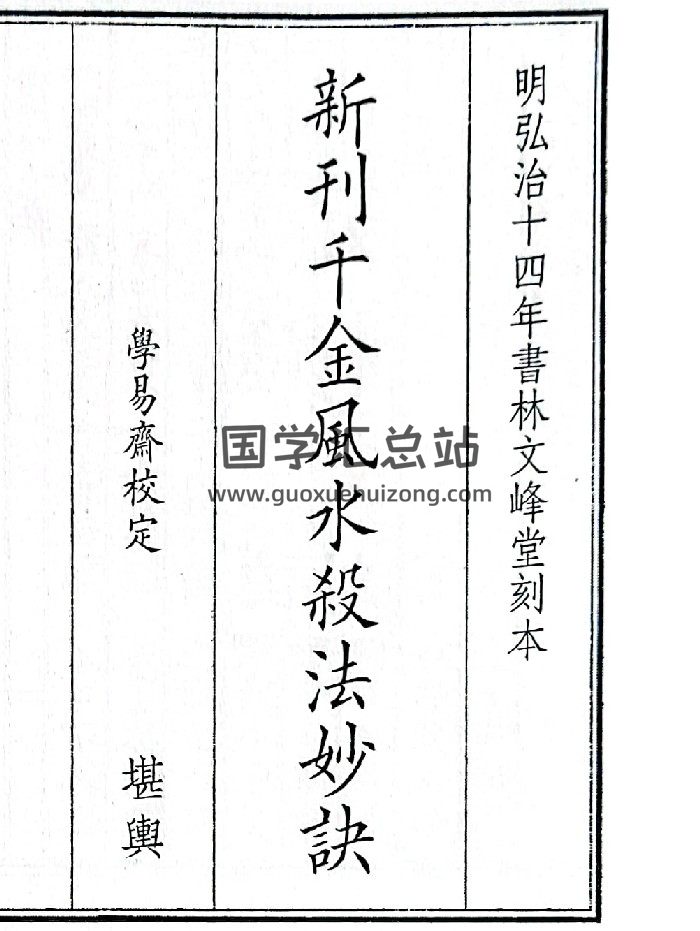 明弘治十四年書林文峰堂刻本
新刊千金風水殺法妙訣
學易齋校定
堪輿
国学汇总站
www.guoxuehuizong.com